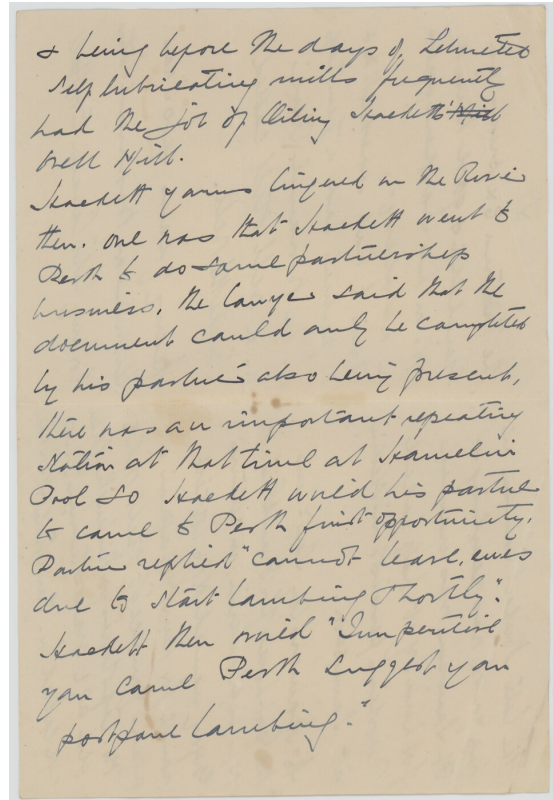 & being before the days of
Self lubricating mills frequently
had the job of Oiling Hackett's Mill
Well Mill.
Hackett yarns lingered on the River
then. one was that Hackett went to
Perth to do some partnership
business. the lawyer said that the
document could only be completed
by his partner also being present,
there was an important repeating
Station at that time at Hamelin
Pool so Hackett wired his partner
to come to Perth first opportunity.
Partner replied "cannot leave, ewes
due to start lambing shortly".
Hackett then wired "Imperitive
you come Perth suggest you
postpone lambing."